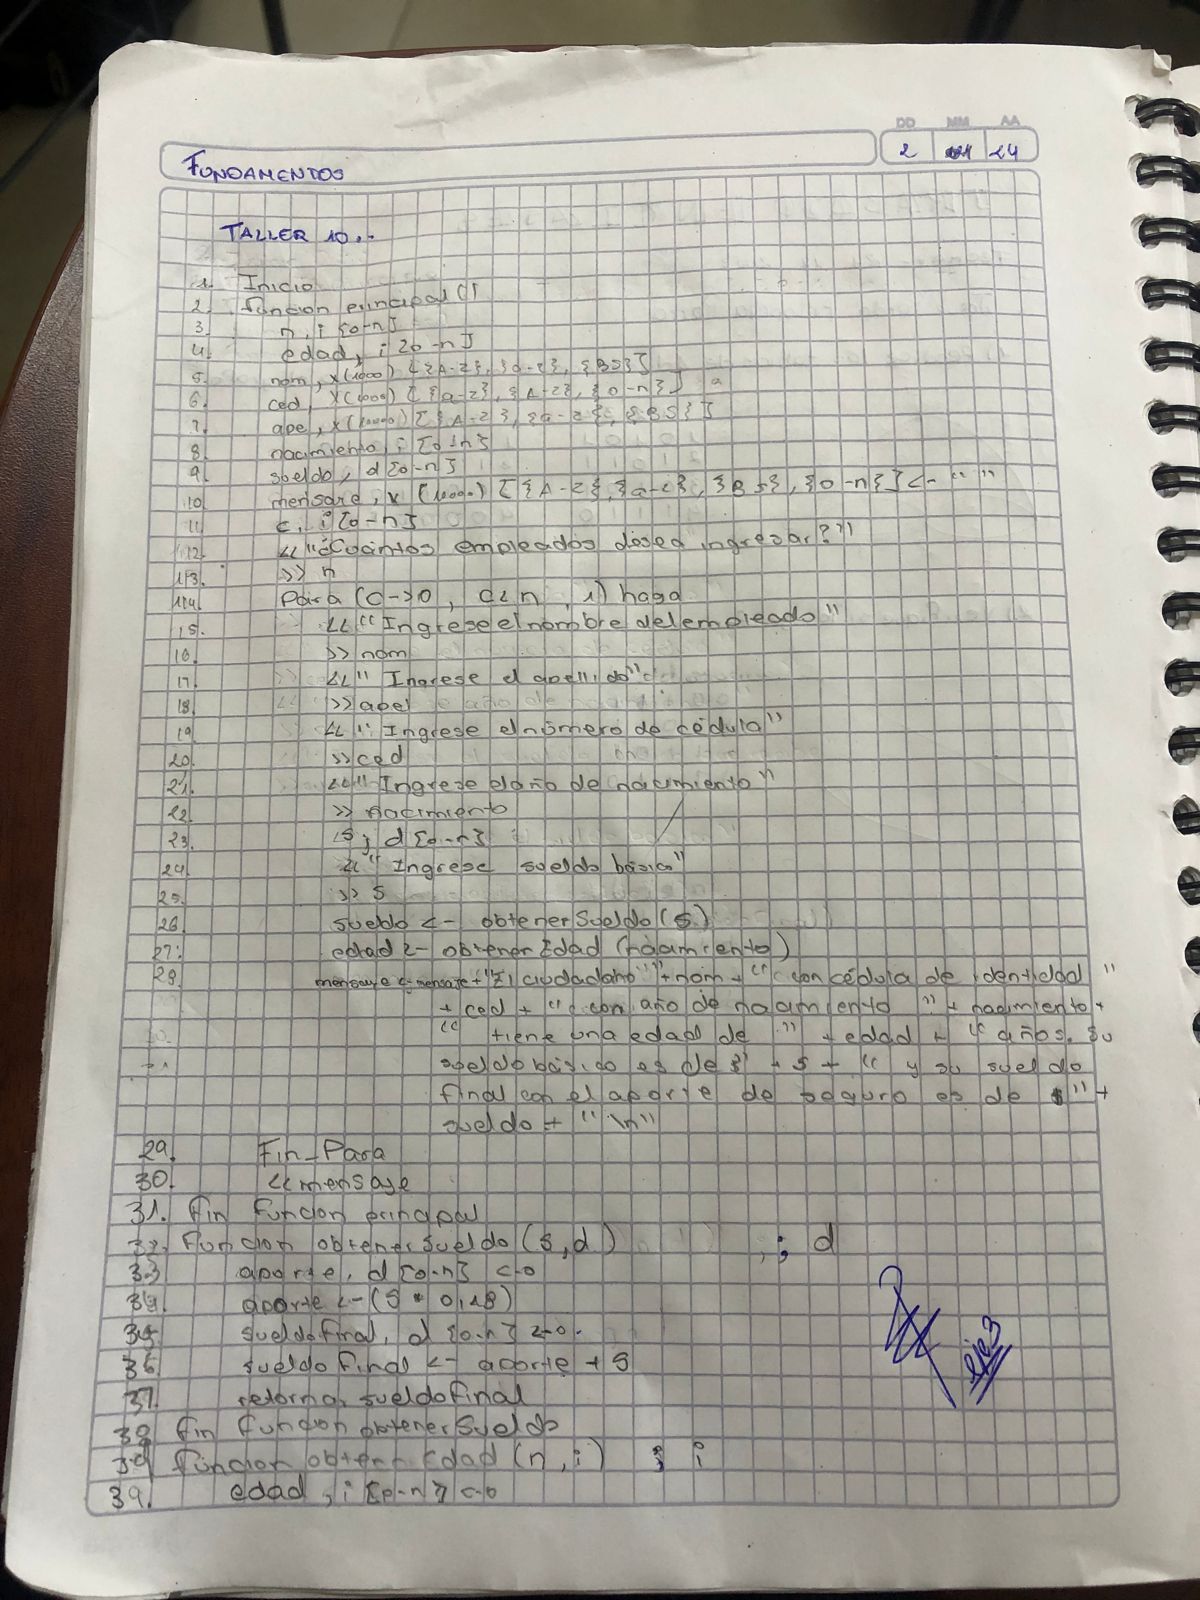 DD MM AA
2 04 24
FUNDAMENTOS
TALLER 10.-
1. Inicio
2. función principal ()
3. n, i [0-n]
4. edad, i [0-n]
5. nom, x(1000) [{A-Z}, {a-z}, {BS}]
6. ced, x(1000) [{a-z}, {A-Z}, {0-n}]
7. ape, x(1000) [{A-Z}, {a-z}, {BS}]
8. nacimiento, i [0-n]
9. sueldo, d [0-n]
10. mensaje, x (1000) [{A-Z}, {a-z}, {BS}, {0-n}] <- " "
11. c, i [0-n]
12. << "¿Cuántos empleados desea ingresar?"
13. >> n
14. Para (c->0, c<n, 1) haga
15. << "Ingrese el nombre del empleado"
16. >> nom
17. << "Ingrese el apellido"
18. >> apel
19. << "Ingrese el número de cédula"
20. >> ced
21. << "Ingrese el año de nacimiento"
22. >> nacimiento
23. s, d [0-n]
24. << "Ingrese sueldo básico"
25. >> s
26. sueldo <- obtenerSueldo (s)
27. edad <- obtenerEdad (nacimiento)
28. mensaje <- mensaje + "El ciudadano" + nom + " con cédula de identidad "
+ ced + " con año de nacimiento " + nacimiento +
" tiene una edad de " + edad + " años. Su
sueldo básico es de $" + s + " y su sueldo
final con el aporte de seguro es de $" +
sueldo + "\n"
29. Fin-Para
30. << mensaje
31. fin función principal
32. función obtenerSueldo (s, d) ; d
33 aporte, d [0-n] <-0
34. aporte <- (s * 0,18)
35. sueldofinal, d [0-n] <-0.
36. sueldofinal <- aporte + s
37. retornar sueldofinal
38 fin función obtenerSueldo
39 función obtenerEdad (n, i) ; i
39. edad, i [0-n] <-0
eje3